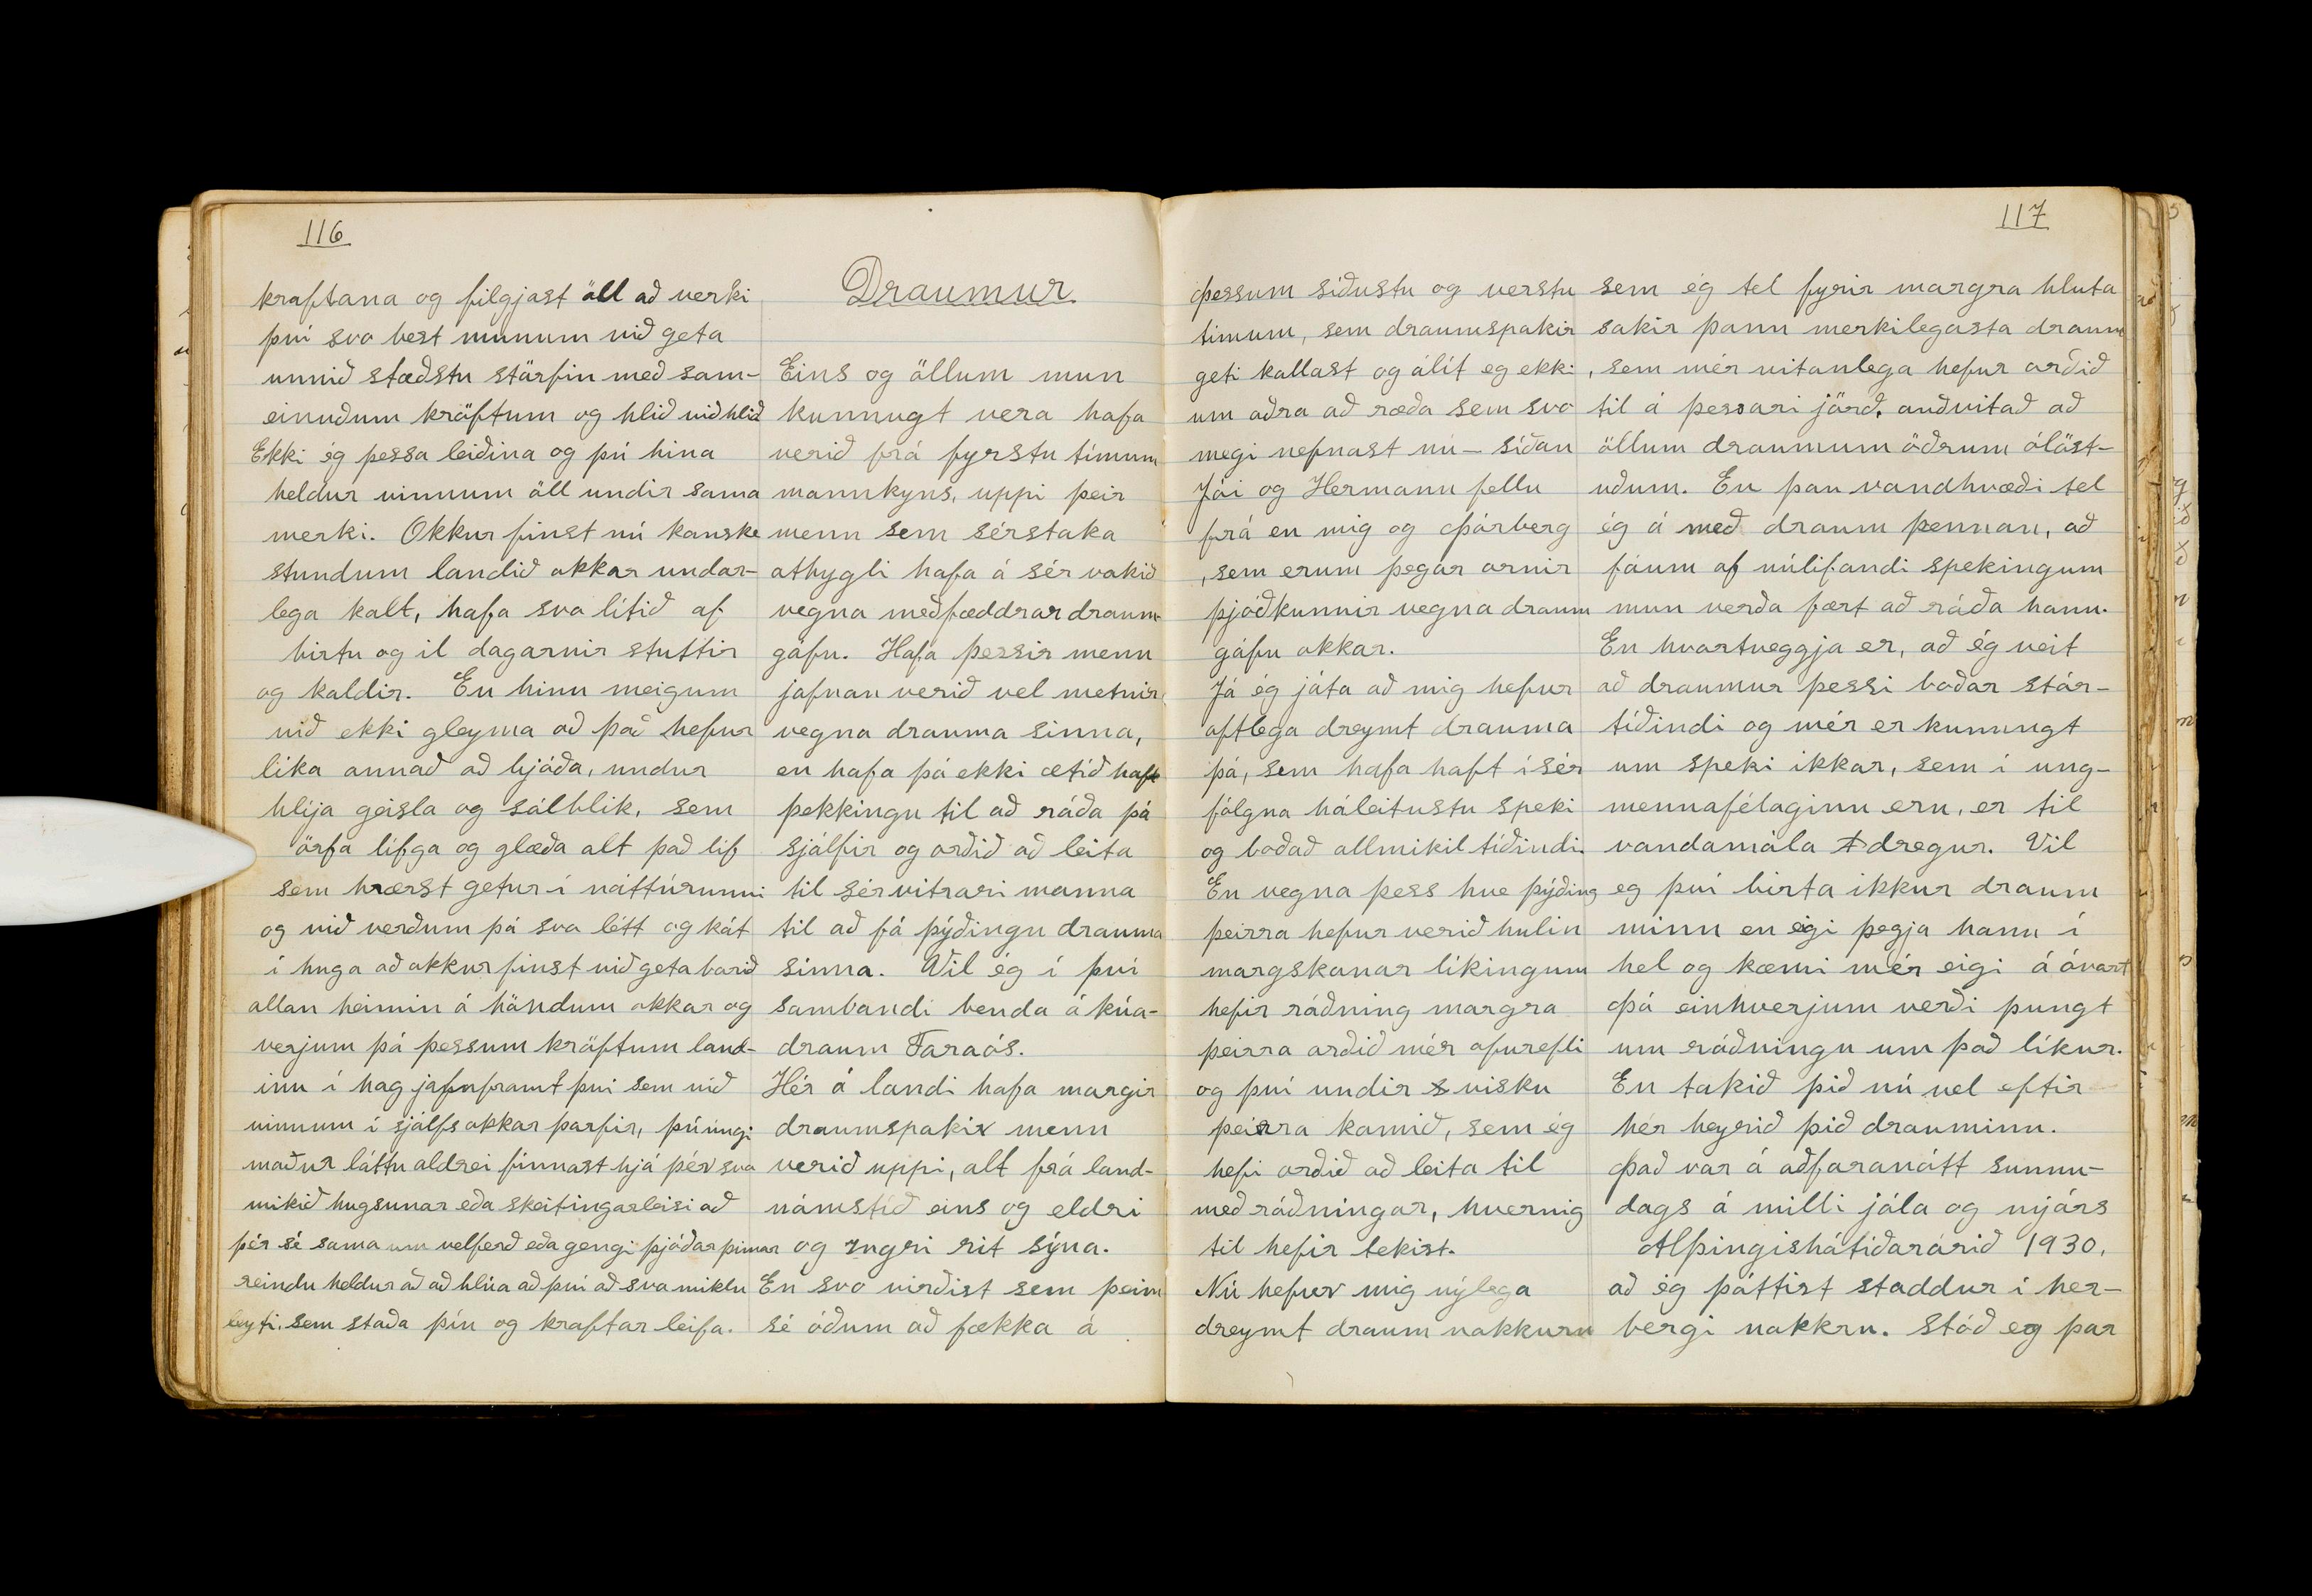 116
kraftana og filgjast öll að verki
því svo best munum við geta
unnið stæðstu störfin með sam-
einuðum kröftum og hlið við hlið
Ekki ég þessa leiðina og þú hina
heldur vinnum öll undir sama
merki. Okkur finst nú kanske
stundum landið okkar undar-
lega kalt, hafa svo lítið af
birtu og il dagarnir stuttir
og kaldir. En hinu meigum
við ekki gleyma að það hefur
líka annað að bjóða, undur
hlýja geisla og sólblik, sem
örfa lífga og glæða alt það líf
sem hrærst getur í náttúrunni
og við verðum þá svo létt og kát
í huga að okkur finst við geta borið
allan heimin á höndum okkar og
verjum þá þessum kröftum land-
inu í hag jafnframt því sem við
vinnum í sjálfs okkar þarfir, þú úngi
maður láttu aldrei finnast hjá þér svo
mikið hugsunar eða skeitingarleisi að
þér sé sama um velferð eða gengi þjóðar þinnar
reindu heldur að að hlúa að því að svo miklu
leyti, sem staða þín og kraftar leifa.
Draumur
Eins og öllum mun
kunnugt vera hafa
verið frá fyrstu tímum
mannkyns, uppi þeir
menn sem sérstaka
athygli hafa á sér vakið
vegna meðfæddrar draum-
gáfu. Hafa þessir menn
jafnan verið vel metnir
vegna drauma sinna,
en hafa þá ekki ætíð haft
þekkingu til að ráða þá
sjálfir og orðið að leita
til sér vitrari manna
til að fá þýðingu drauma
sinna. Vil ég í því
sambandi benda á kúa-
draum Faraós.
Hér á landi hafa margir
draumspakir menn
verið uppi, alt frá land-
námstíð eins og eldri
og yngri rit sýna.
En svo virðist sem þeim
sé óðum að fækka á
117
þessum síðustu og verstu
tímum, sem draumspakir
geti kallast og álít eg ekki
um aðra að ræða sem svo
megi nefnast nú - síðan
Jói og Hermann fellu
frá en mig og Þórberg
, sem erum þegar ornir
þjóðkunnir vegna draum
gáfu okkar.
Já ég játa að mig hefur
oftlega dreymt drauma
þá, sem hafa haft í sér
fólgna háleitustu speki
og boðað allmikil tíðindi.
En vegna þess hve þýðing
þeirra hefur verið hulin
margskonar líkingum
hefir ráðning margra
þeirra orðið mér ofurefli
og því undir visku
þeirra komið, sem ég
hefi orðið að leita til
með ráðningar, hvernig
til hefir tekist.
Nú hefur mig nýlega
dreymt draum nokkurn
sem ég tel fyrir margra hluta
sakir þann merkilegasta draum
, sem mér vitanlega hefur orðið
til á þessari jörð, auðvitað að
öllum draumum öðrum ólöst-
uðum. En þau vandhvæði tel
ég á með draum þennan, að
fáum af núlifandi spekingum
mun verða fært að ráða hann.
En hvortveggja er, að ég veit
að draumur þessi boðar stór-
tíðindi og mér er kunnugt
um speki ikkar, sem í ung-
mennafélaginu eru, er til
vandamála dregur. Vil
eg því birta ikkur draum
minn en eigi þegja hann í
hel og kæmi mér eigi á óvart
Þá einhverjum verði þungt
um ráðningu um það líkur.
En takið þið nú vel eftir
hér heyrið þið drauminn.
Það var á aðfaranótt sunnu-
dags á milli jóla og nýjárs
Alþingishátíðarárið 1930,
að ég þóttist staddur í her-
bergi nokkru. Stóð eg þar